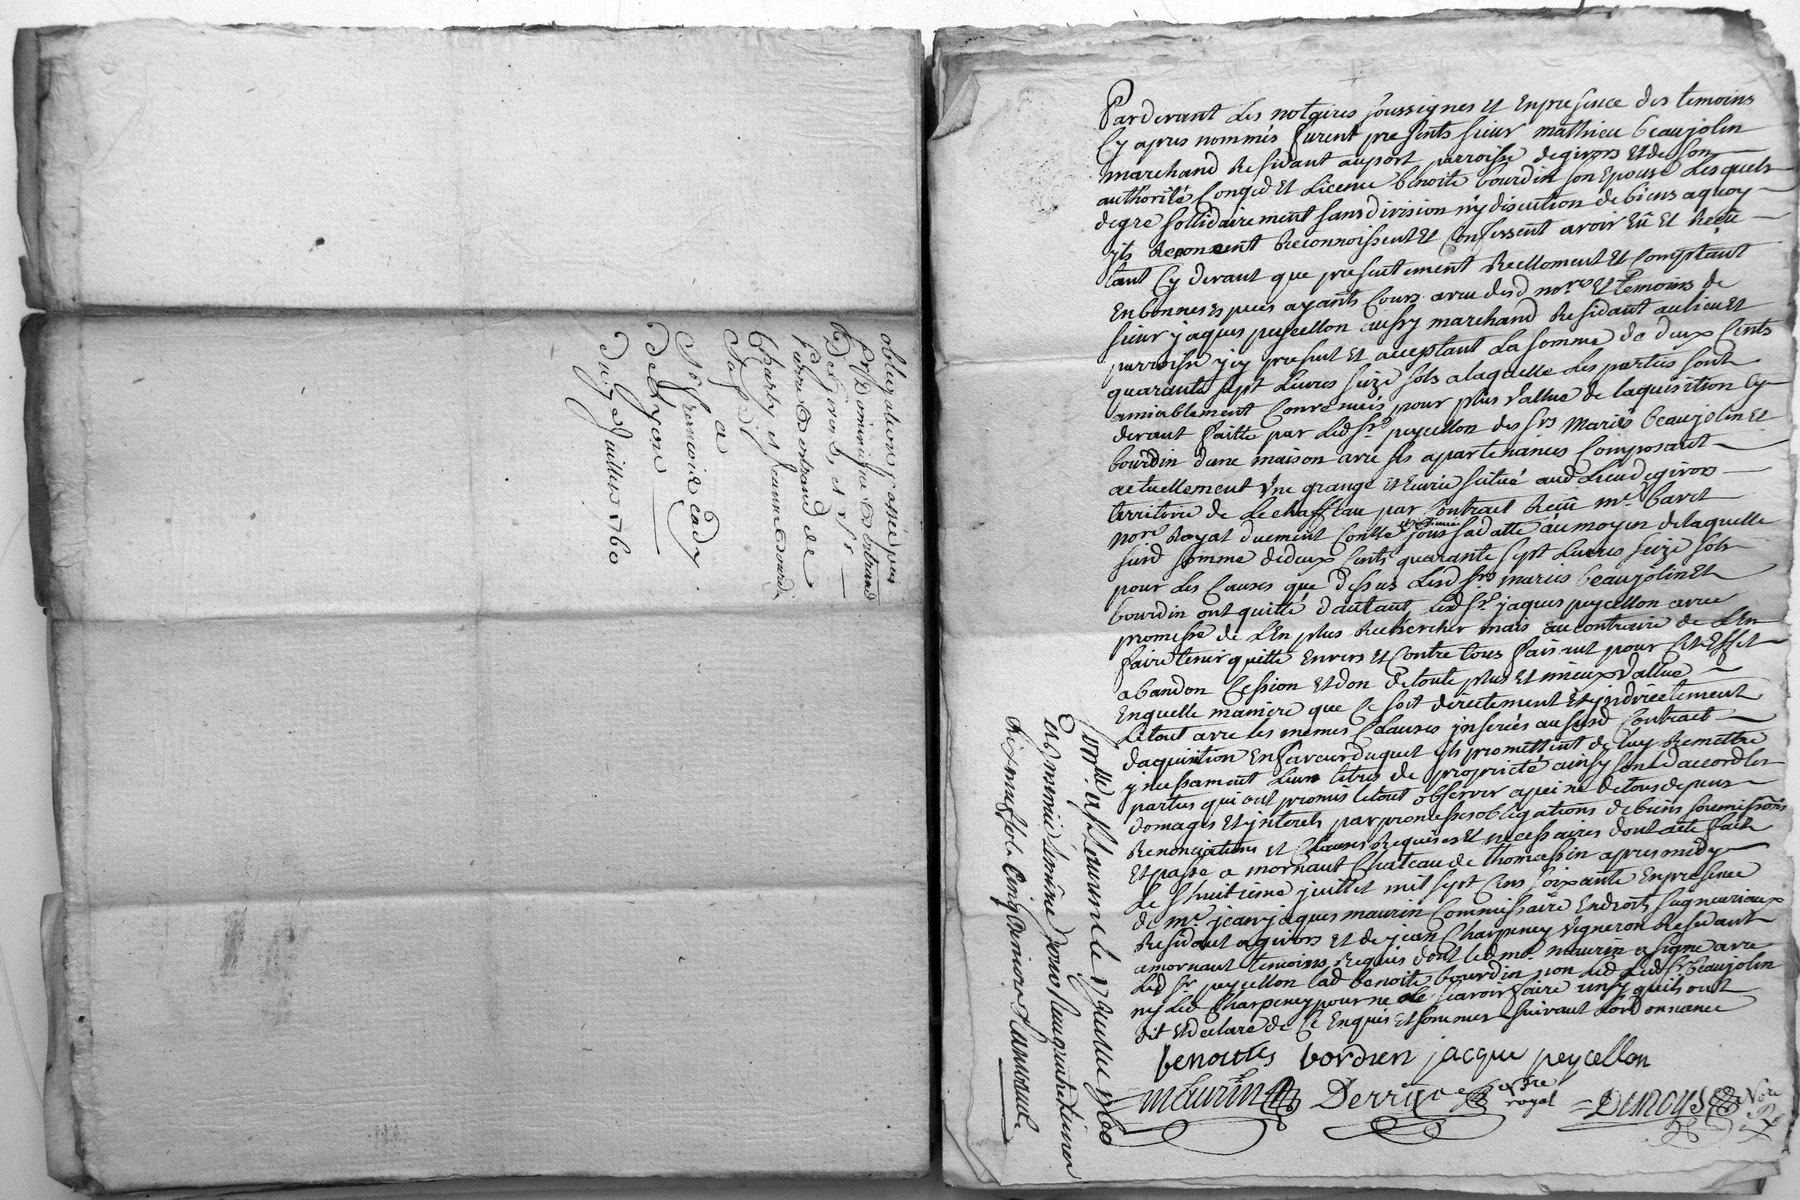 obligation passée par
Sr dominique Bertrand
De givors, et Sr
pierre Bertrand de
Charly et jeanne
a
Sr françois cady
De Lyon
Du 9e Juillet 1760
Pardevant Les notaires soussignes Et Enpresence des temoins
Cy apres nommés furent presents sieur mathieu beaujolin
marchand Residant auport parroisse degivors Etdeson
authorité Congé Et Licence benoite bourdin son Epouse Lesquels
degre sollidairement sans division ny discution debiens aquoy
ils Renoncent Reconnoissent Et Confessent avoir Eû Et Reçû
tant Cy devant que presentement Reellement Et Comptant
Enbonnes Especes ayants Cours avue desd nores Et temoins de
sieur jaques peycellon aussy marchand Residant aulieu Et
parroisse jcy present Et acceptant La somme de deux Cents
quarante sept Livres seize sols alaquelle Les parties sont
amiablement Convenües pour plus vallue de laquisition Cy
devant faitte par Led sr peycellon des srs Mariés beaujolin Et
bourdin dune maison avec ses apartenances Composant
actuellement Vne grange Et Ecurie situéé aud Lieu degivors
territoire de Lechaffeau par Contract Reçû me
nore Royal duement Conllé sous sadatte aumoyen delaquelle
susd somme dedeux Cents quarante sept Livres seize sols
pour Les Causes que dessus Lesd srs mariés beaujolin Et
bourdin ont quitté dautant Led sr jaques peycellon avec
promesse de LEn plus Rechercher mais au contraire de LEn
faire tenir quitte Envers Et Contre tous faisant pour Cet Effet
abandon Cession Etdon detoute plus Et mieux vallue
Enquelle maniere que Ce soit directement Et jndirectement
Letout avec les memes Clauses jnserées aususd Contract
daquisition Enfaveur duquel ils promettent deluy Remettre
jncessament Leurs titres de propriété ainsy sont daccord les
parties qui ont promis letout observer apeine detous depens
domages Et jnterets par promesses obligations debiens soumissions
Renonciations Et Clauses Requises Et necessaires dont acte fait
Et passé a mornant Chateau de thomassin apres midy
Le huitieme juillet mil sept Cens soixante Enpresence
de me jean jaques maurin Commissaire Endroits seigneuriaux
Residant agivors Et de jean Charpeney vigneron Residant
amornant temoins Requis dont led me maurin a signe avec
Led sr peycellon lad benoite bourdin non Led sr beaujolin
ny Led Charpeney pour ne le scavoir faire ainsy quils ont
dit Et declaré de Ce Enquis Et sommes suivant Lordonnance
benoittes bordien jacque peycellon
maurin Derrioe Nore royal DUNOYS Nore
Controllé a st Laurent le juillet 1760